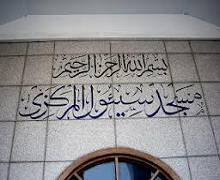 بسم الله الرحمن الرحيم
مسجد سيئول المركزى